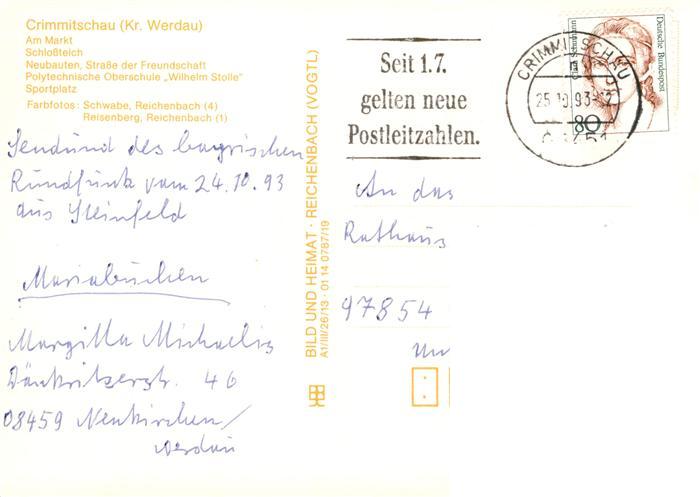 Crimmitschau (Kr. Werdau)
Am Markt
Schloßteich
Neubauten, Straße der Freundschaft
Polytechnische Oberschule „Wilhelm Stolle"
Sportplatz
Farbfotos: Schwabe, Reichenbach (4)
Reisenberg, Reichenbach (1)
Sendund des bayrischen
Rundfunk vom 24.10.93
aus Steinfeld
Mariabuchen
Margitta Michaelis
Dänkritzerstr. 46
08459 Neukirchen/
Werdau
BILD UND HEIMAT · REICHENBACH (VOGTL)
A1/III/26/13 · 01 14 0787/19
Seit 1.7.
gelten neue
Postleitzahlen.
CRIMMITSCHAU
25.10.93-12
Deutsche Bundespost
80
An das
Rathaus
97854